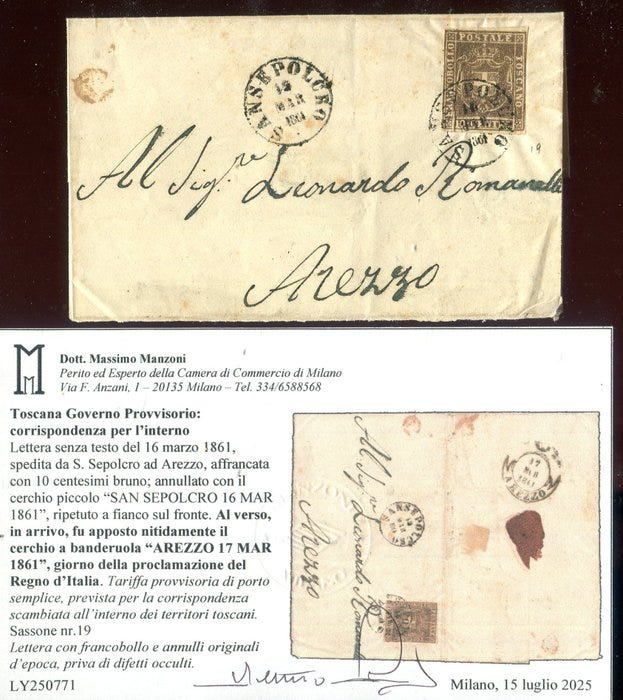 SANSEPOLCRO
16
MAR
1861
FRANCOBOLLO POSTALE TOSCANO
19
Al Sig.re Leonardo Romanelli
Arezzo
Dott. Massimo Manzoni
Perito ed Esperto della Camera di Commercio di Milano
Via F. Anzani, 1 – 20135 Milano – Tel. 334/6588568
Toscana Governo Provvisorio:
corrispondenza per l’interno
Lettera senza testo del 16 marzo 1861,
spedita da S. Sepolcro ad Arezzo, affrancata
con 10 centesimi bruno; annullato con il
cerchio piccolo “SAN SEPOLCRO 16 MAR
1861”, ripetuto a fianco sul fronte. Al verso,
in arrivo, fu apposto nitidamente il
cerchio a banderuola “AREZZO 17 MAR
1861”, giorno della proclamazione del
Regno d’Italia. Tariffa provvisoria di porto
semplice, prevista per la corrispondenza
scambiata all’interno dei territori toscani.
Sassone nr.19
Lettera con francobollo e annulli originali
d’epoca, priva di difetti occulti.
LY250771
Al Sig.re Leonardo Romanelli
Arezzo
SANSEPOLCRO
17
MAR
1861
AREZZO
Milano, 15 luglio 2025